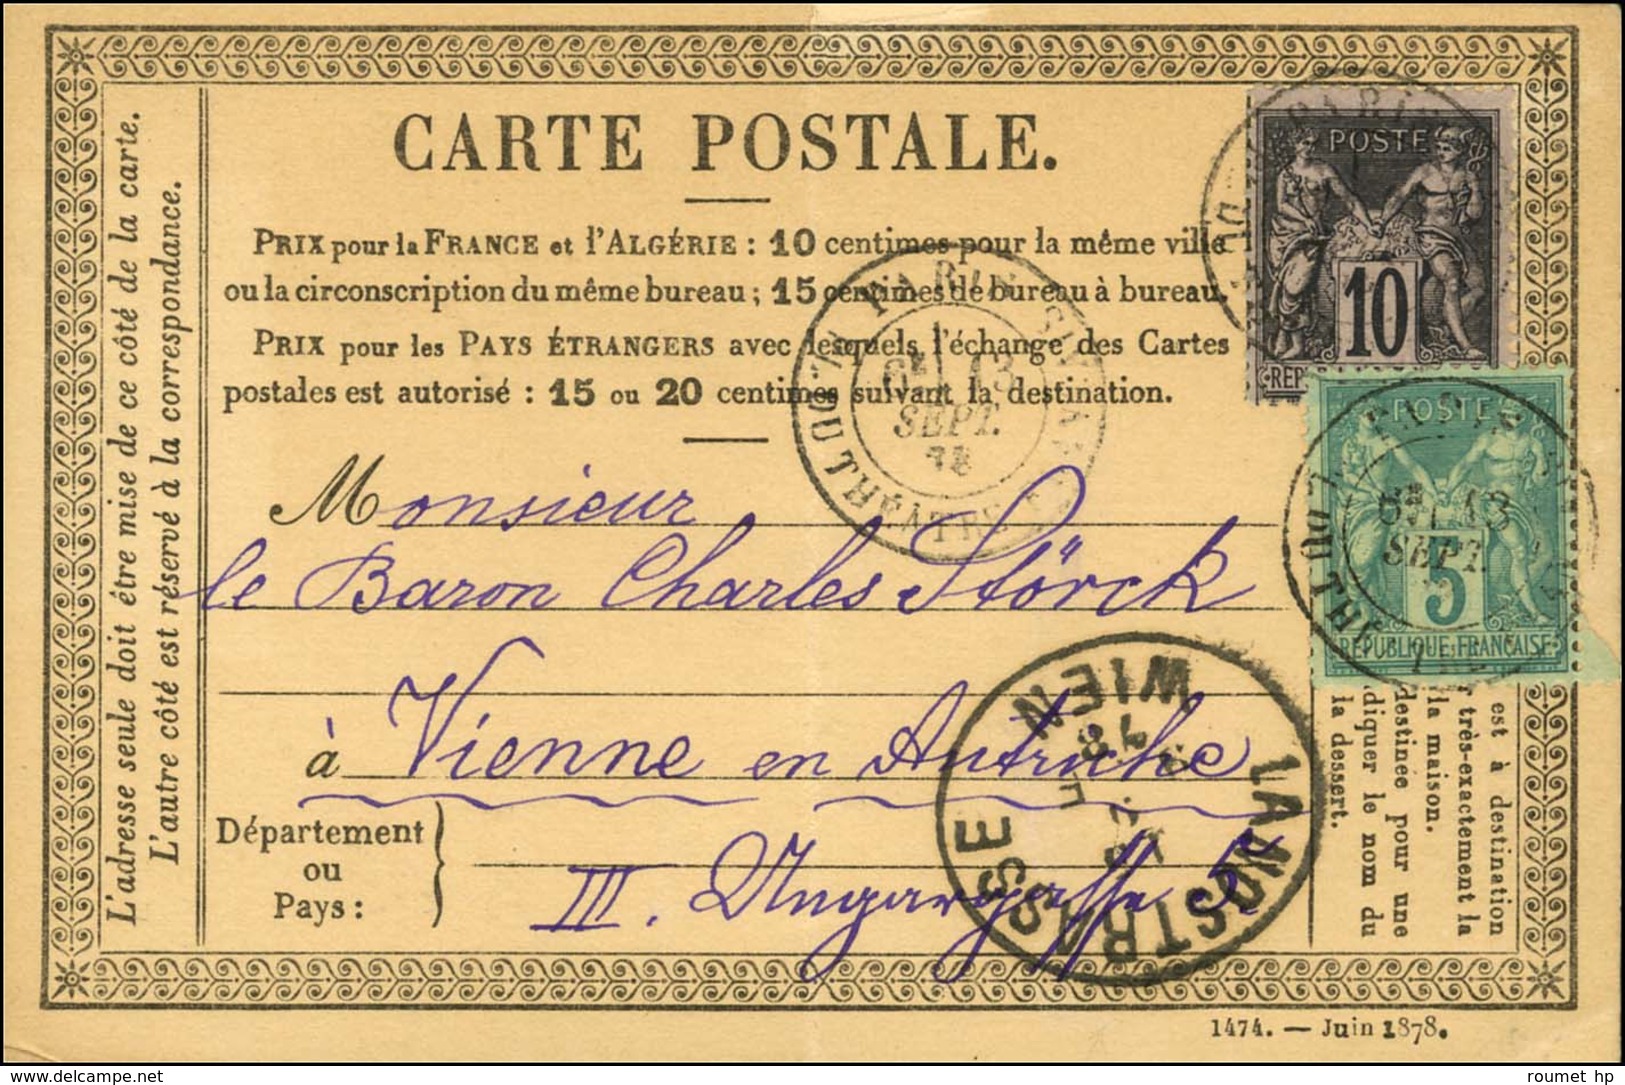 CARTE POSTALE.
PRIX pour la FRANCE et l'ALGÉRIE : 10 centimes pour la même ville
ou la circonscription du même bureau ; 15 centimes de bureau à bureau.
PRIX pour les PAYS ÉTRANGERS avec lesquels l'échange des Cartes
postales est autorisé : 15 ou 20 centimes suivant la destination.
L'adresse seule doit être mise de ce côté de la carte.
L'autre côté est réservé à la correspondance.
POSTE
10
REP
POSTE
5
RÉPUBLIQUE FRANÇAISE
6E 13
SEPT.
78
THÉÂTRE
13
SEPT.
Monsieur
le Baron Charles Störck
à Vienne en Autriche
III. Ungargasse 5.
Département
ou
Pays :
WIEN
LANDSTRASSE
78
est à destination
très-exactement la
la maison.
destinée pour une
diquer le nom du
la dessert.
1474. — Juin 1878.
www.delcampe.net
roumet hp